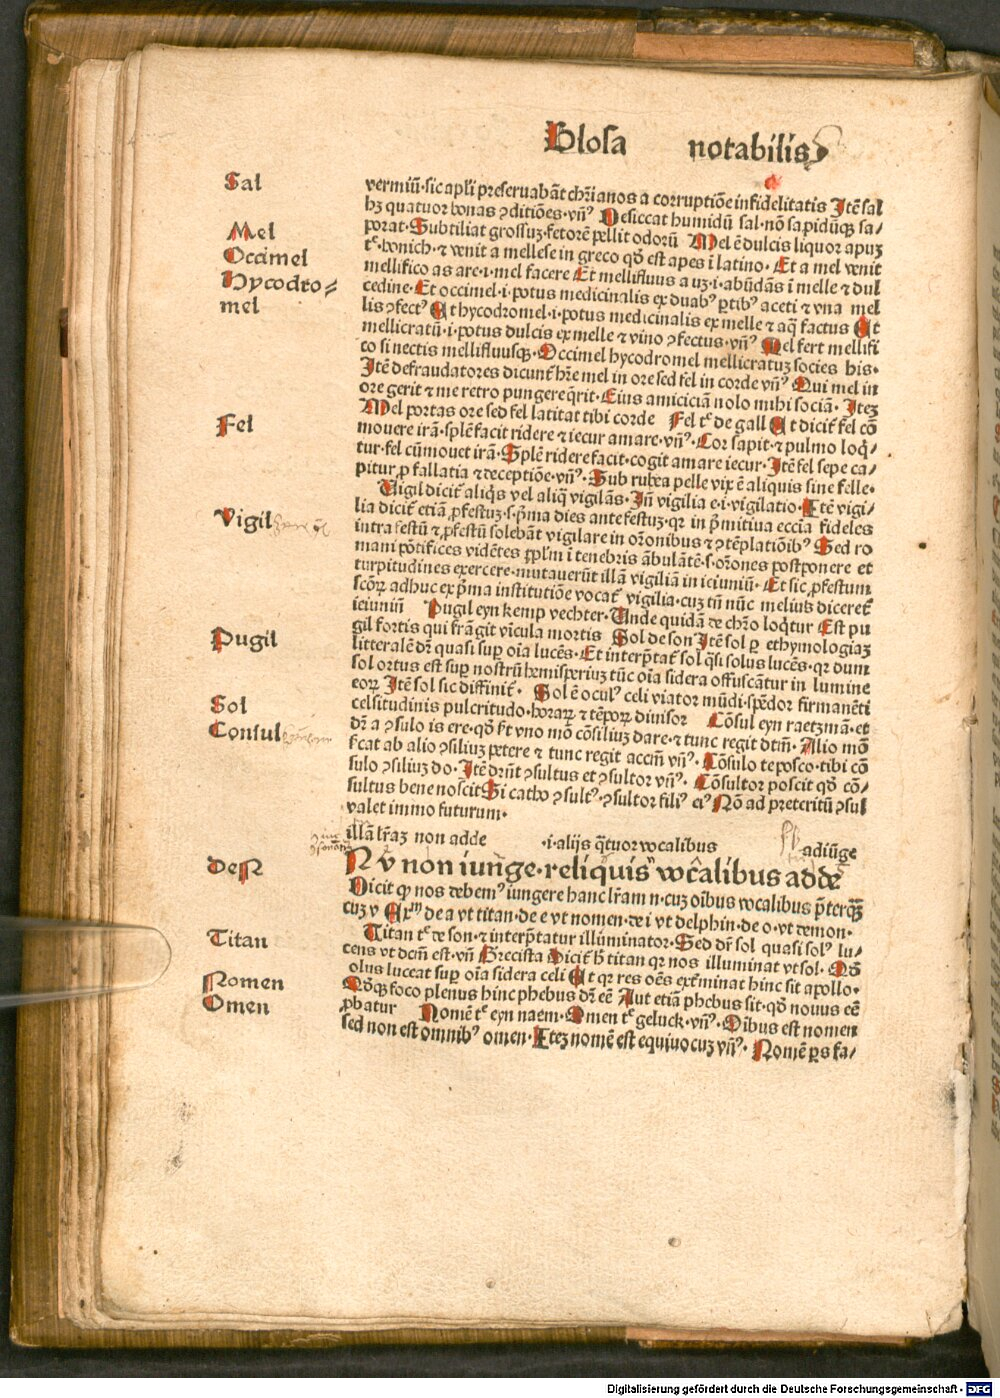 Glosa notabilis
Sal
vermiū·sic apl̄i preseruabāt chr̄ianos a corruptiōe infidelitatis Itē sal
hꝫ quatuor bonas ꝯditiōes·vñ⁹ Desiccat humidū sal·nō sapidūqꝫ sa-
porat·Subtiliat grossuꝫ·fetorē pellit odorū Mel ē dulcis liquor apuꝫ
Mel
tͤ·honich·⁊ venit a mellese in greco qđ est apes ī latino·Et a mel venit
Occimel
mellifico as are·i·mel facere Et mellifluus a uꝫ·i·abūdās ī melle ⁊ dul
Hycodro⸗
cedine·Et occimel·i·potus medicinalis ex duab⁹ ꝑtib⁹ aceti ⁊ vna mel
mel
lis ꝯfect⁹ Et hycodromel·i·potus medicinalis ex melle ⁊ aq̄ factus Et
mellicratū·i·potus dulcis ex melle ⁊ vino ꝯfectus·vñ⁹ Mel fert mellifi
co si nectis mellifluusqꝫ·Occimel hycodromel mellicratuꝫ socies his·
Itē defraudatores dicunt̄ hr̄e mel in ore sed fel in corde vñ⁹ Qui mel in
ore gerit ⁊ me retro pungere q̄rit·Eius amiciciā nolo mihi sociā·Iteꝫ
Mel portas ore sed fel latitat tibi corde Fel tͤ de gall Et dicit̄ fel cō
Fel
mouere irā·splē facit ridere ⁊ iecur amare·vñ⁹·Cor sapit·⁊ pulmo loq̄⸗
tur·fel cū mouet irā·Splē ridere facit·cogit amare iecur·Itē fel sepe ca⸗
pitur ꝓ fallatia ⁊ deceptiōe·vñ⁹·Sub rubea pelle vix ē aliquis sine felle·
Vigil dicit̄ aliq̄s vel aliq̄ vigilās·Iñ vigilia e·i·vigilatio·Itē vigi⸗
Vigil
lia dicit̄ etiā ꝓfestuꝫ·s·p̄ma dies ante festuꝫ·qꝛ in p̄mitiua eccīa fideles
intra festū ⁊ ꝓfestū solebāt vigilare in or̄onibus ⁊ ꝯtēplatiōib⁹ Sed ro
mani pōtifices vidētes ꝓpl̄m ī tenebris ābulātē·s·or̄ones postponere et
turpitudines exercere·mutauerūt illā vigiliā in ieiuniū·Et sic ꝓfestum
scōꝝ adhuc ex p̄ma institutiōe vocat̄ vigilia·cuꝫ tñ nūc melius diceret̄
ieiuniū Pugil eyn kemp vechter·Unde quidā de chr̄o loq̄tur Est pu
Pugil
gil fortis qui frāgit vīcula mortis Sol de son Itē sol ꝑ ethymologiaꝫ
litteralē dꝛ quasi suꝑ oīa lucēs·Et interp̄tat̄ sol q̄si solus lucēs·qꝛ dum
sol ortus est suꝑ nostrū hemisperiuꝫ tūc oīa sidera offuscātur in lumine
eoꝝ Itē sol sic diffinit̄·Sol ē ocul⁹ celi viator mūdi·spēdor firmanēti
Sol
celsitudinis pulcritudo·horaꝝ ⁊ tēpoꝝ diuisor Cōsul eyn raetzman·et
Consul
dꝛ a ꝯsulo is ere·qđ fit vno mō cōsiliuꝫ dare·⁊ tunc regit dtm̄·Alio mō
fi̇cat ab alio ꝯsiliuꝫ petere ⁊ tunc regit accm̄ vñ⁹·Cōsulo te posco·tibi cō
sulo ꝯsiliuꝫ do·Itē dr̄nt ꝯsultus et ꝯsultor vñ⁹·Cōsultor poscit qđ cō⸗
sultus bene noscit Si catho ꝯsult⁹·ꝯsultor fili⁹ ei⁹ Nō ad preteritū ꝯsul
valet immo futurum·
illā lr̄aꝫ non adde ·i·alijs q̄tuor vocalibus adiūge
De N
N v non iunge·reliquis vocalibus adde
Dicit ꝙ nos debem⁹ iungere hanc lr̄am n·cuꝫ oībus vocalibus p̄terqꝫ
cuꝫ v Exm̄ de a vt titan·de e vt nomen·de i vt delphin·de o·vt demon·
Titan
Titan tͤ de son·⁊ interp̄tatur illuminator·Sed dr̄ sol quasi sol⁹ lu⸗
cens vt dcm̄ est·vñ Grecista Dicit̄ h̄ titan qꝛ nos illuminat vt sol·Qđ
olus luceat suꝑ oīa sidera celi Et qꝛ res oēs exf̄minat hinc sit apollo·
Nomen
Qđqꝫ foco plenus hinc phebus dr̄ eē Aut etiā phebus sit·qđ nouus eē
Omen
ꝓbatur Nomē tͤ eyn naem·Omen tͤ geluck·vñ⁹·Oībus est nomen
sed non est omnib⁹ omen·Iteꝫ nomē est equiuocuꝫ vñ⁹·Nomē ꝑs fa⸗
Digitalisierung gefördert durch die Deutsche Forschungsgemeinschaft - DFG